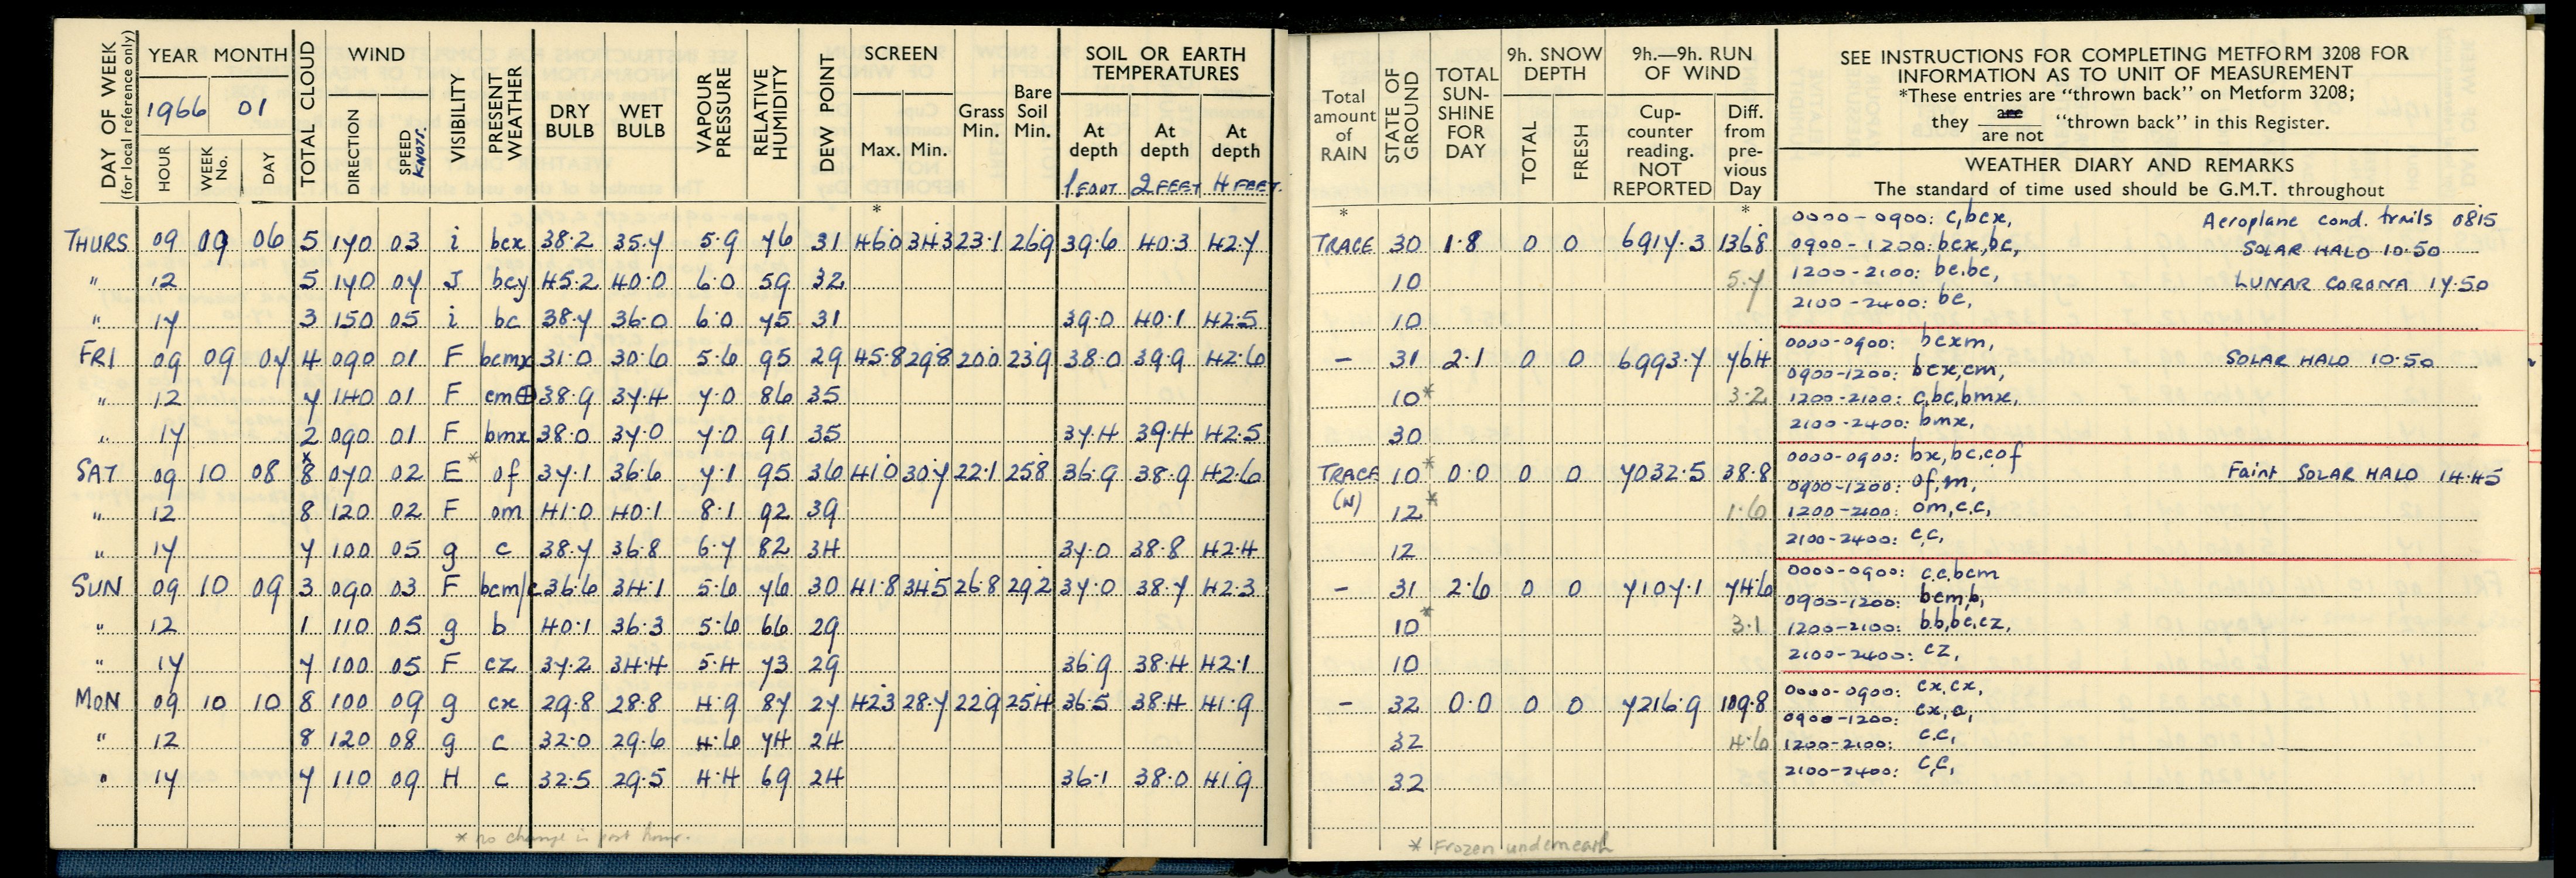 DAY OF WEEK (for local reference only)
YEAR MONTH
1966 01
HOUR WEEK No. DAY
TOTAL CLOUD
WIND
DIRECTION SPEED KNOTS.
VISIBILITY
PRESENT WEATHER
DRY BULB
WET BULB
VAPOUR PRESSURE
RELATIVE HUMIDITY
DEW POINT
SCREEN
Max. Min.
Grass Min.
Bare Soil Min.
SOIL OR EARTH TEMPERATURES
At depth At depth At depth
1 FOOT 2 FEET 4 FEET.
*
THURS 09 09 06 5 170 03 i bcx 38.2 35.7 5.9 76 31 46.0 34.3 23.1 26.9 39.6 40.3 42.7
" 12 5 170 07 J bcy 45.2 40.0 6.0 59 32
" 17 3 150 05 i bc 38.7 36.0 6.0 75 31 39.0 40.1 42.5
FRI 09 09 07 4 090 01 F bcmx 31.0 30.6 5.6 95 29 45.8 29.8 20.0 23.9 38.0 39.9 42.6
" 12 7 140 01 F cm⊕ 38.9 37.4 7.0 86 35
" 17 2 090 01 F bmx 38.0 37.0 7.0 91 35 37.4 39.4 42.5
SAT 09 10 08 8* 070 02 E* of 37.1 36.6 7.1 95 36 41.0 30.7 22.1 25.8 36.9 38.9 42.6
" 12 8 120 02 F om 41.0 40.1 8.1 92 39
" 17 7 100 05 g c 38.7 36.8 6.7 82 34 37.0 38.8 42.4
SUN 09 10 09 3 090 03 F bcm/c 36.6 34.1 5.6 76 30 41.8 34.5 26.8 29.2 37.0 38.7 42.3
" 12 1 110 05 g b 40.1 36.3 5.6 66 29
" 17 7 100 05 F cz 37.2 34.4 5.4 73 29 36.9 38.4 42.1
MON 09 10 10 8 100 09 g cx 29.8 28.8 4.9 87 27 42.3 28.7 22.9 25.4 36.5 38.4 41.9
" 12 8 120 08 g c 32.0 29.6 4.6 74 24
" 17 7 110 09 H c 32.5 29.5 4.4 69 24 36.1 38.0 41.9
* no change in past hour.
Total amount of RAIN
STATE OF GROUND
TOTAL SUN-SHINE FOR DAY
9h. SNOW DEPTH
TOTAL FRESH
9h.—9h. RUN OF WIND
Cup-counter reading. NOT REPORTED
Diff. from pre-vious Day
SEE INSTRUCTIONS FOR COMPLETING METFORM 3208 FOR
INFORMATION AS TO UNIT OF MEASUREMENT
*These entries are "thrown back" on Metform 3208;
they are / are not "thrown back" in this Register.
WEATHER DIARY AND REMARKS
The standard of time used should be G.M.T. throughout
* *
TRACE 30 1.8 0 0 6917.3 136.8
10 5.7
10
– 31 2.1 0 0 6993.7 76.4
10* 3.2
30
TRACE 10* 0.0 0 0 7032.5 38.8
(W) 12* 1.6
12
– 31 2.6 0 0 7107.1 74.6
10* 3.1
10
– 32 0.0 0 0 7216.9 109.8
32 4.6
32
0000-0900: c,bcx, Aeroplane cond. trails 0815
0900-1200: bcx,bc, SOLAR HALO 10.50
1200-2100: bc,bc, LUNAR CORONA 17.50
2100-2400: bc,
0000-0900: bcxm, SOLAR HALO 10.50
0900-1200: bcx,cm,
1200-2100: c,bc,bmx,
2100-2400: bmx,
0000-0900: bx,bc,cof Faint SOLAR HALO 14.45
0900-1200: of,m,
1200-2100: om,c,c,
2100-2400: c,c,
0000-0900: c,c,bcm
0900-1200: bcm,b,
1200-2100: b,b,bc,cz,
2100-2400: cz,
0000-0900: cx,cx,
0900-1200: cx,c,
1200-2100: c,c,
2100-2400: c,c,
* Frozen underneath